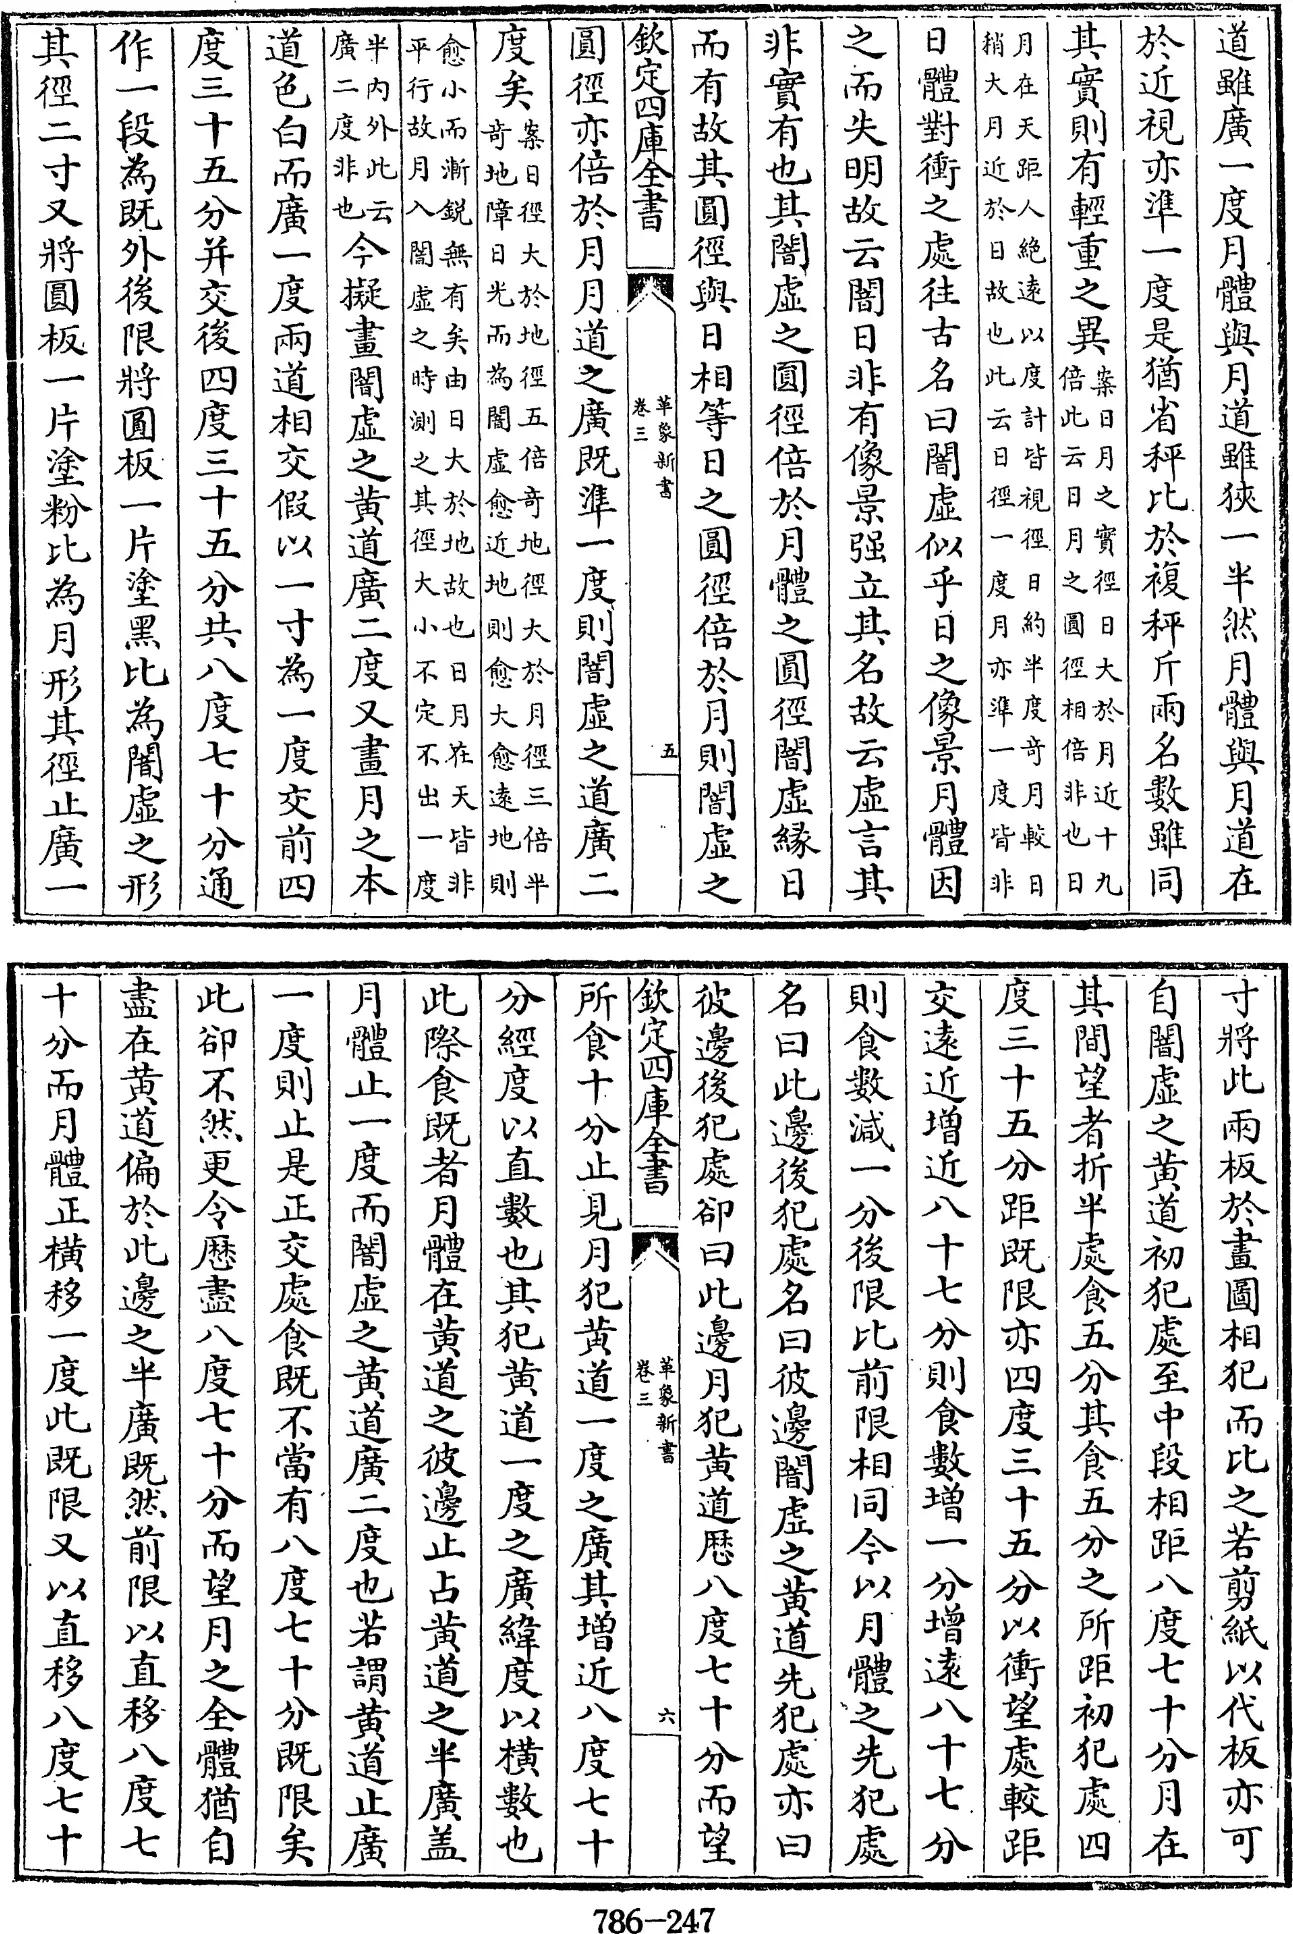 道雖廣一度月體與月道雖狹一半然月體與月道在
於近視亦準一度是猶省秤比於複秤斤兩名數雖同
其實則有輕重之異案日月之實徑日大於月近十九
倍此云日月之圓徑相倍非也日
月在天距人絶遠以度計皆視徑日約半度奇月較日
稍大月近於日故也此云日徑一度月亦準一度皆非
日體對衝之處往古名曰闇虛似乎日之像景月體因
之而失明故云闇日非有像景强立其名故云虛言其
非實有也其闇虛之圓徑倍於月體之圓徑闇虛縁日
而有故其圓徑與日相等日之圓徑倍於月則闇虛之
欽定四庫全書
革象新書
卷三
五
圓徑亦倍於月月道之廣既準一度則闇虛之道廣二
度矣案日徑大於地徑五倍奇地徑大於月徑三倍半
奇地障日光而為闇虛愈近地則愈大愈遠地則
愈小而漸鋭無有矣由日大於地故也日月在天皆非
平行故月入闇虛之時測之其徑大小不定不出一度
半内外此云
廣二度非也今擬畫闇虛之黄道廣二度又畫月之本
道色白而廣一度兩道相交假以一寸為一度交前四
度三十五分并交後四度三十五分共八度七十分通
作一段為既外後限將圓板一片塗黑比為闇虛之形
其徑二寸又將圓板一片塗粉比為月形其徑止廣一
寸將此兩板於畫圖相犯而比之若剪紙以代板亦可
自闇虛之黄道初犯處至中段相距八度七十分月在
其間望者折半處食五分其食五分之所距初犯處四
度三十五分距既限亦四度三十五分以衝望處較距
交遠近増近八十七分則食數増一分增遠八十七分
則食數減一分後限比前限相同今以月體之先犯處
名曰此邊後犯處名曰彼邊闇虛之黄道先犯處亦曰
彼邊後犯處卻曰此邊月犯黄道厯八度七十分而望
欽定四庫全書
革象新書
卷三
六
所食十分止見月犯黄道一度之廣其増近八度七十
分經度以直數也其犯黄道一度之廣緯度以橫數也
此際食既者月體在黄道之彼邊止占黄道之半廣盖
月體止一度而闇虛之黄道廣二度也若謂黄道止廣
一度則止是正交處食既不當有八度七十分既限矣
此卻不然更令厯盡八度七十分而望月之全體猶自
盡在黄道偏於此邊之半廣既然前限以直移八度七
十分而月體正橫移一度此既限又以直移八度七十
786-247